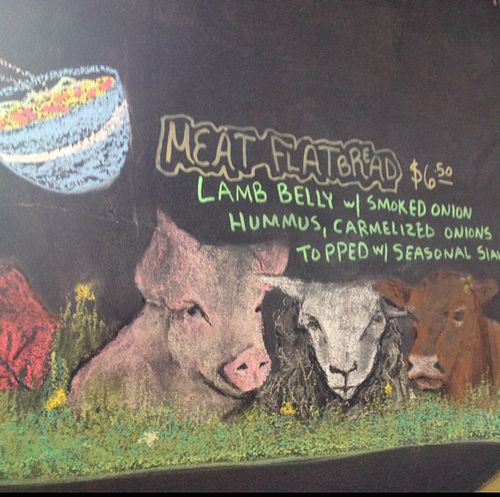 MEAT FLATBREAD $6.50
LAMB BELLY w/ SMOKED ONION
HUMMUS, CARMELIZED ONIONS
TOPPED w/ SEASONAL